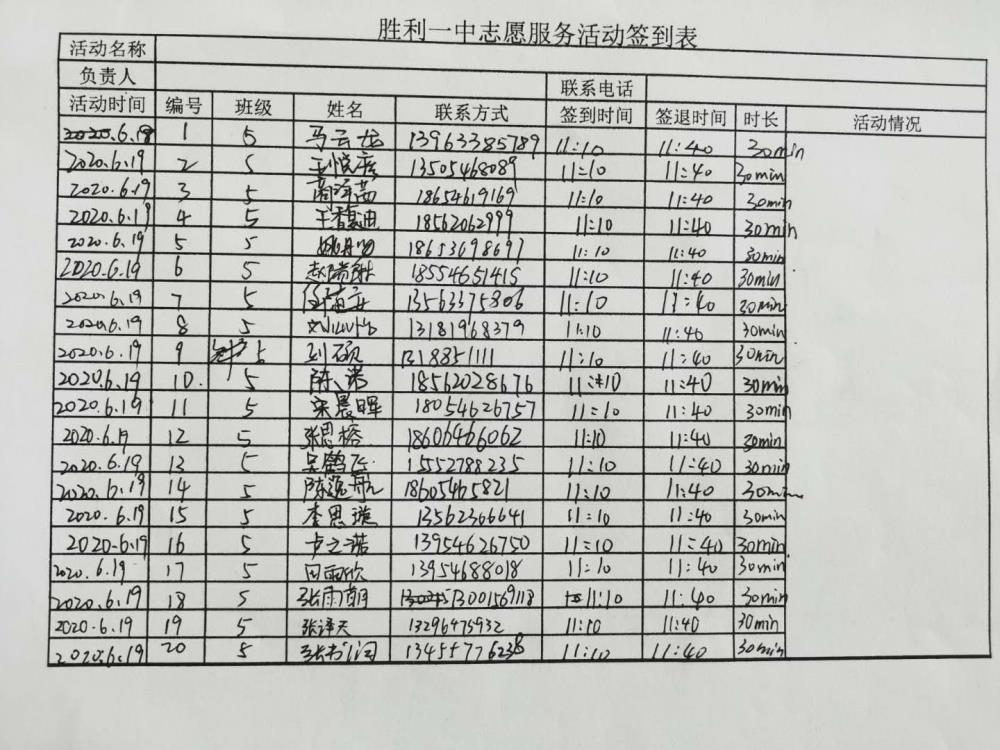 胜利一中志愿服务活动签到表
活动名称
负责人 联系电话
活动时间 编号 班级 姓名 联系方式 签到时间 签退时间 时长 活动情况
2020.6.19 1 5 马云龙 139633385789 11:10 11:40 30min
2020.6.19 2 5 13505468089 11:10 11:40 30min
2020.6.19 3 5 18654619169 11:10 11:40 30min
2020.6.19 4 5 18562062999 11:10 11:40 30min
2020.6.19 5 5 18653698697 11:10 11:40 30min
2020.6.19 6 5 18554651415 11:10 11:40 30min
2020.6.19 7 5 13563375806 11:10 11:40 30min
2020.6.19 8 5 13181968379 11:10 11:40 30min
2020.6.19 9 5 刘硕 1318851111 11:10 11:40 30min
2020.6.19 10. 5 陈诺 18562028676 11:10 11:40 30min
2020.6.19 11 5 宋晨晖 18054626757 11:10 11:40 30min
2020.6.19 12 5 张思榕 18606466062 11:10 11:40 30min
2020.6.19 13 5 吴鹤飞 15552788235 11:10 11:40 30min
2020.6.19 14 5 陈逸航 18605465821 11:10 11:40 30min
2020.6.19 15 5 李思璇 13562366641 11:10 11:40 30min
2020.6.19 16 5 卢之诺 13954626750 11:10 11:40 30min
2020.6.19 17 5 田雨欣 13954688018 11:10 11:40 30min
2020.6.19 18 5 张雨朝 13001569118 11:10 11:40 30min
2020.6.19 19 5 张译天 13296475932 11:10 11:40 30min
2020.6.19 20 5 13455776238 11:10 11:40 30min